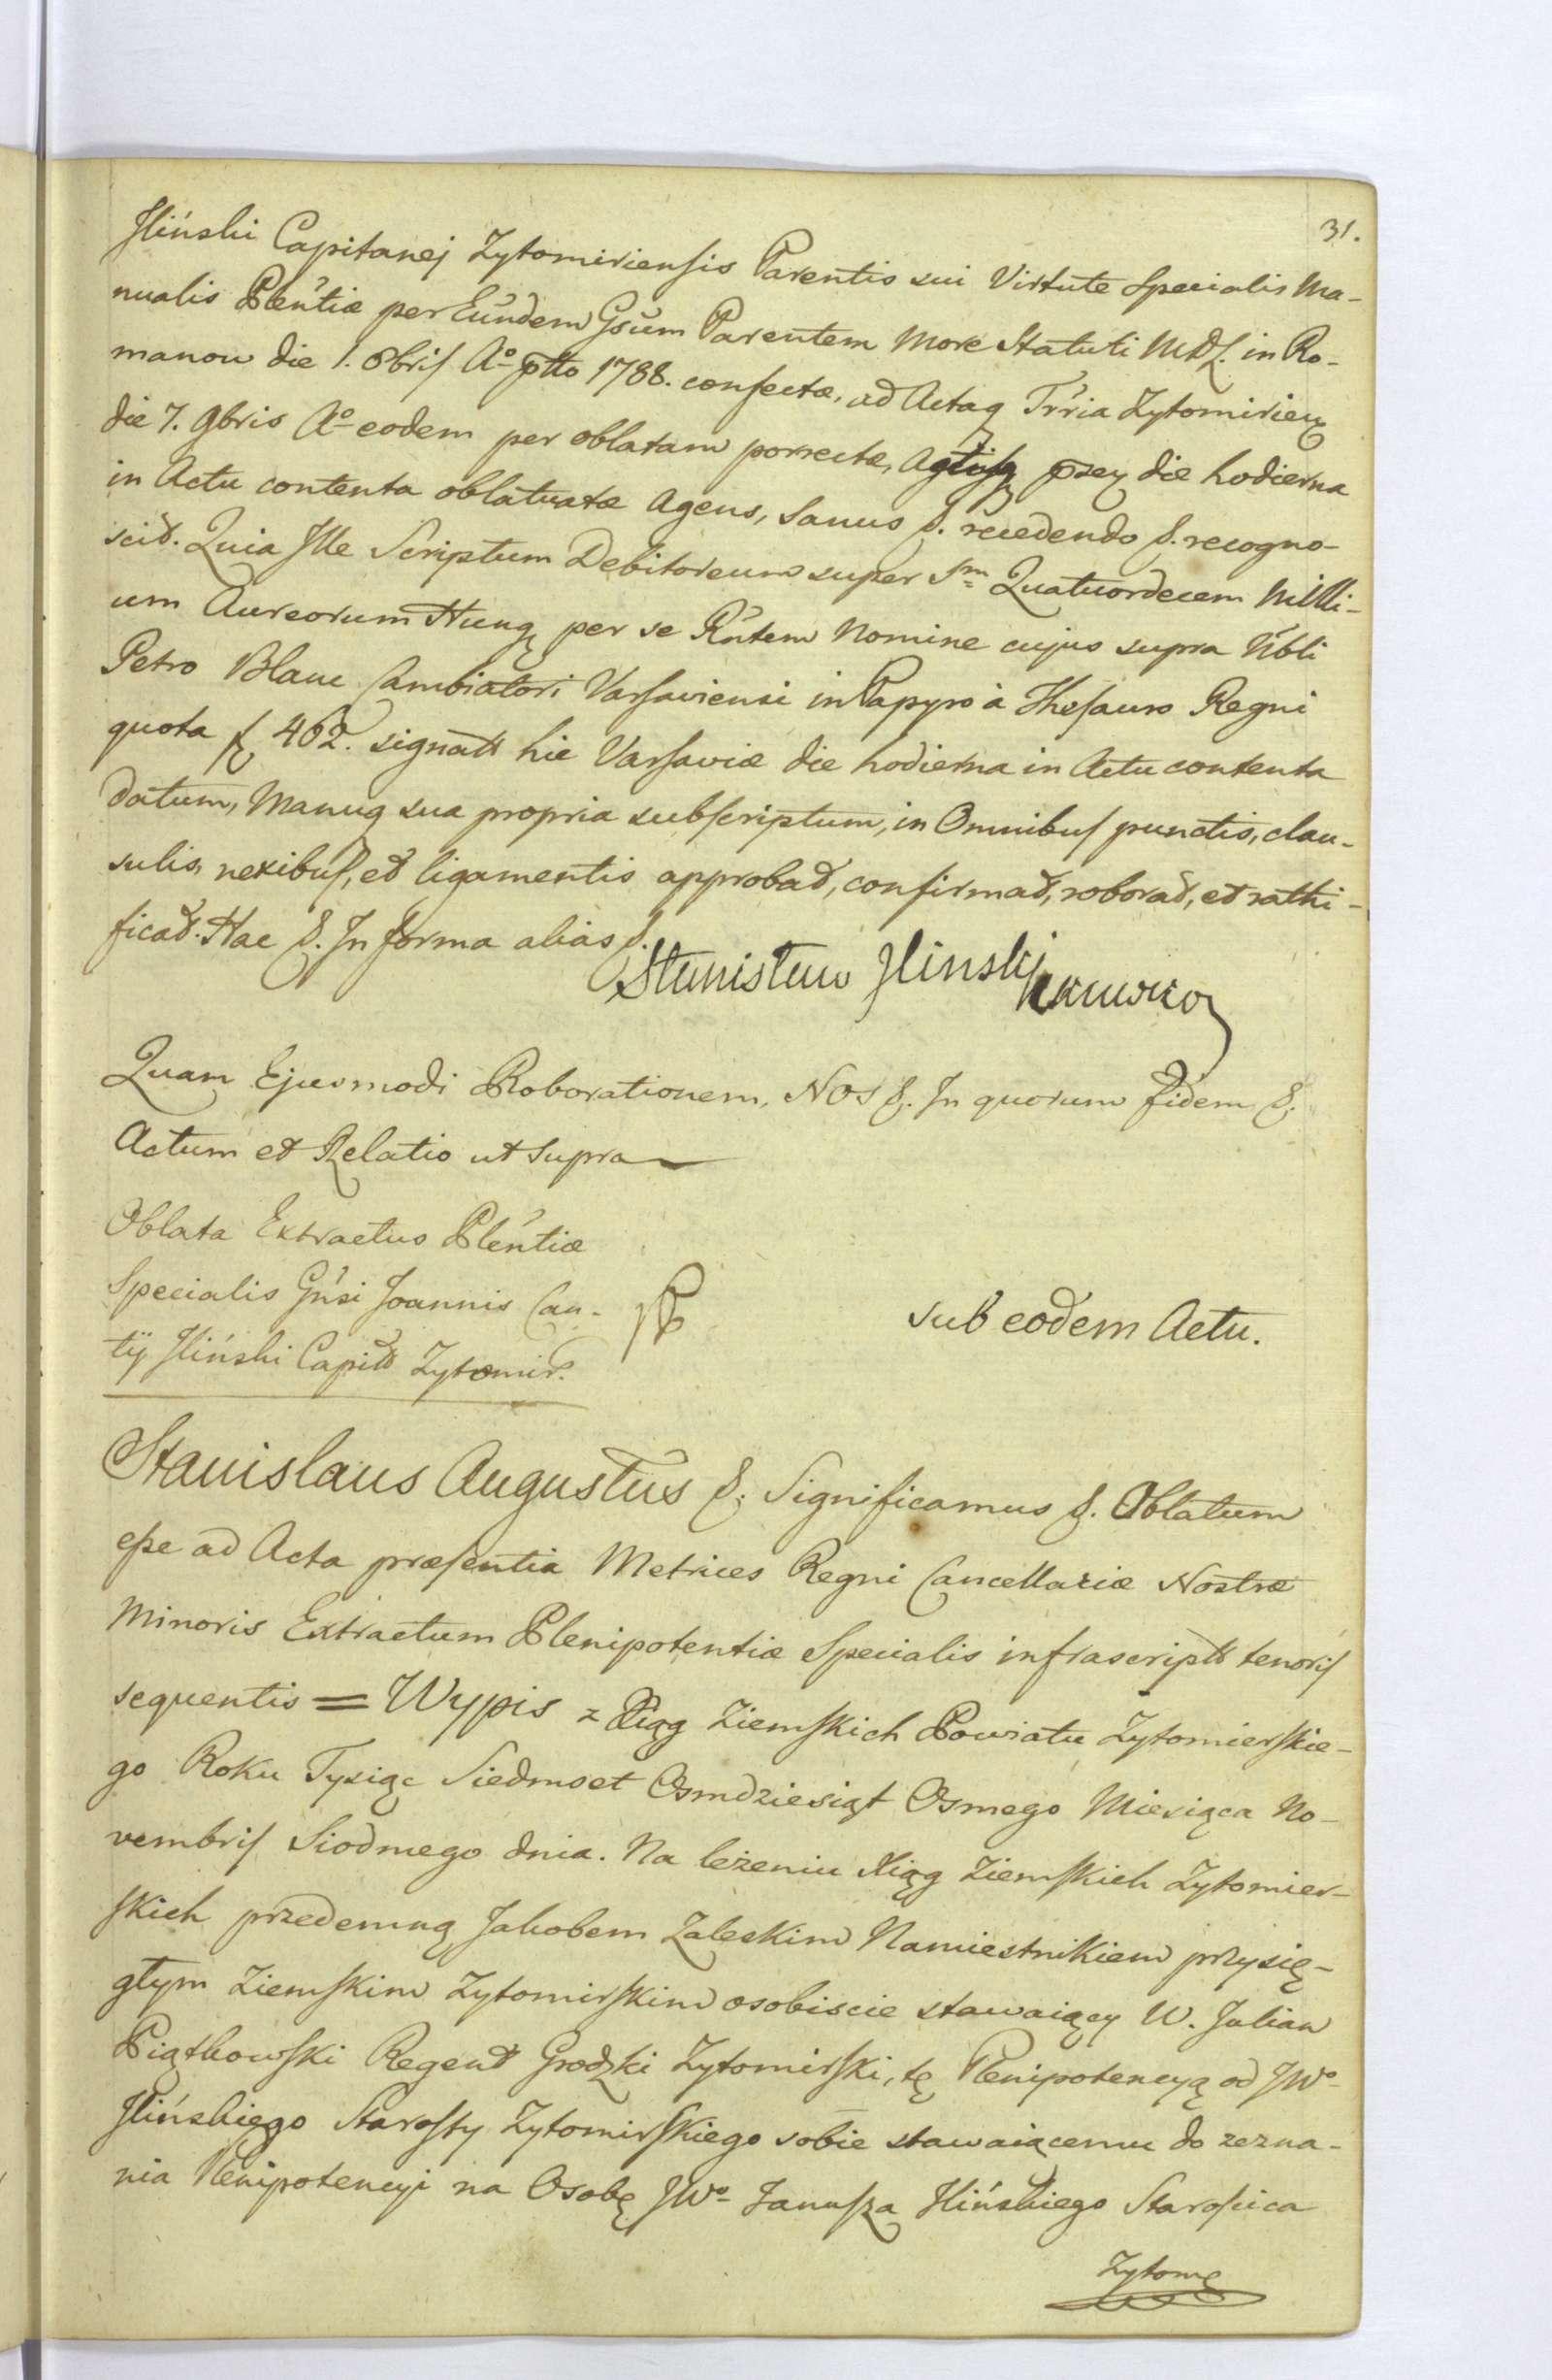 31.
Jliński Capitanej Zytomiriensis Parentis sui Virtute Specialis Ma-
nualis Pleńtiæ per Eundem Gsum Parentem More Statuti MDL. in Ro-
manow die 1. 8bris Ao ptto 1788. confectæ, ad Actaq Trria Zytomirien
die 7. 9bris Ao eodem per oblatam porrectæ, Actisq psey die hodierna
in Actu contenta oblatuatæ Agens, Sanus &. recedendo &. recogno-
scit. Quia Jlle Scriptum Debitoreum super Sm Quatuordecem Milli-
um Aureorum Hung per se Rntem Nomine cujus supra Nbli
Petro Blanc Cambiatori Varsaviensi in Papyro à Thesauro Regni
quota f 462. signatt hic Varsaviæ die hodierna in Actu contenta
datum, Manuq sua propria subscriptum, in Omnibus punctis, clau-
sulis, nexibus, et ligamentis approbat, confirmat, roborat, et rathi-
ficat. Hac &. Jn forma alias &.
Stanisław Jlinski
Quam Ejusmodi Roborationem, Nos &. Jn quorum fidem &.
Actum et Relatio ut supra
Oblata Extractus Pleńtiæ
Specialis Gnsi Joannis Can-
tÿ Jliński Capitt Zytomir.
sub eodem Actu.
Stanislaus Augustus &. Significamus &. Oblatum
esse ad Acta præsentia Metrices Regni Cancellariæ Nostræ
Minoris Extractum Plenipotentiæ Specialis infrascriptt tenoris
sequentis = Wypis z Xiąg Ziemskich Powiatu Zytomierskie-
go Roku Tysiąc Siedmset Osmdziesiąt Osmego Miesiąca No-
vembris Siodmego dnia. Na leżeniu Xiąg Ziemskich Zytomier-
skich przedemną Jakobem Zaleskim Namiestnikiem przysię-
głym Ziemskim Zytomirskim osobiscie stawaiący W. Julian
Piątkowski Regent Grodzki Zytomirski, tę Plenipotencyą od JWo
Jlińskiego Starosty Zytomirskiego sobie stawaiącemu do zezna-
nia Plenipotencyi na Osobę JWo Janusza Jlińskiego Starosica
Zytom